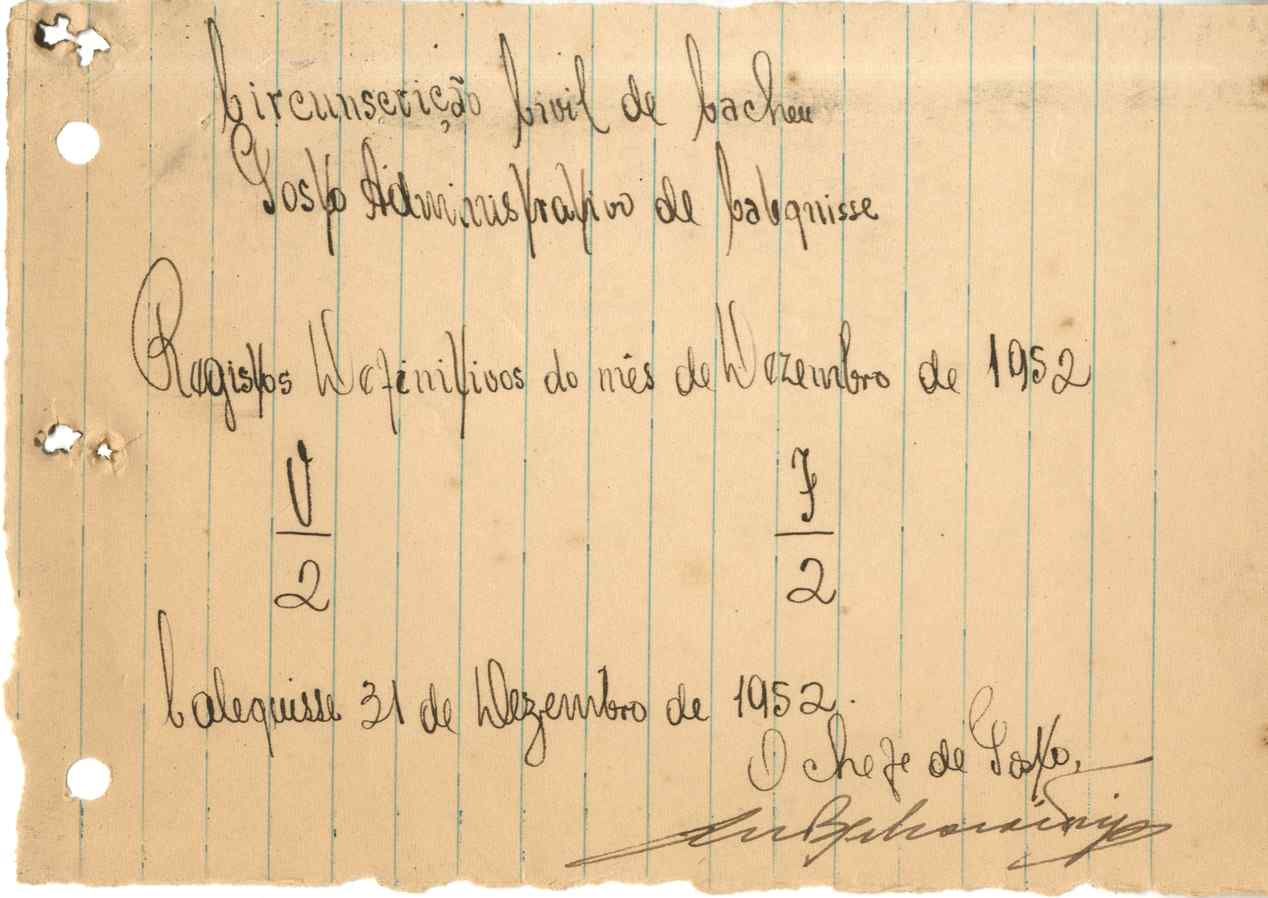 Circunscrição Civil de Cacheu
Posto Administrativo de Calequisse
Registos Definitivos do mês de Dezembro de 1952
V F
2 2
Calequisse 31 de Dezembro de 1952.
O chefe de Posto,